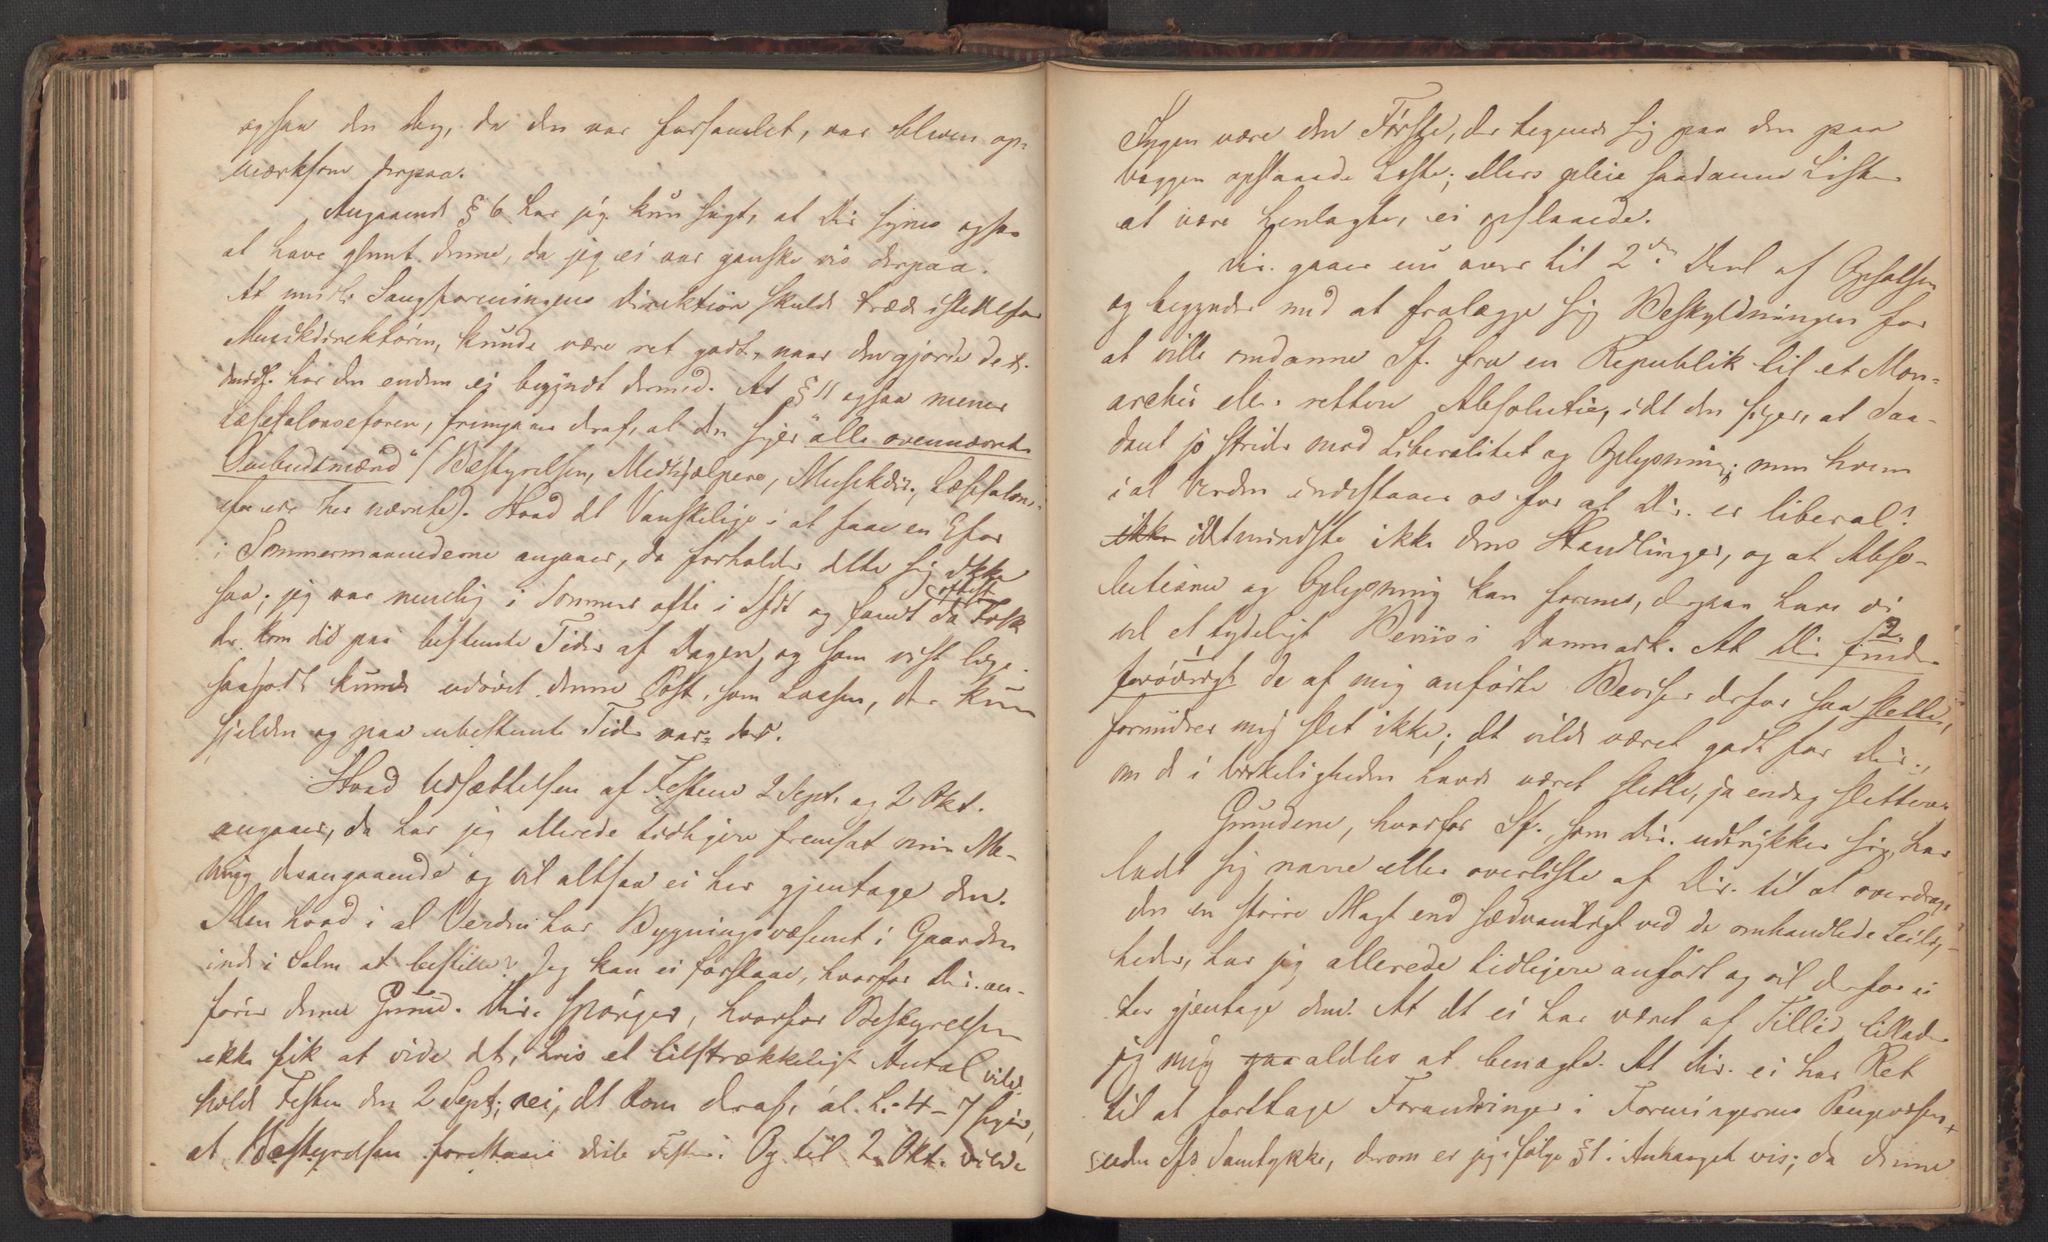 ogsaa den Dag, da den var forsamlet, var bleven op-
mærksom derpaa.
Angaaende § 6 har jeg kun sagt, at Dir. synes ogsaa
at have glemt denne, da jeg ei var ganske vis derpaa.
At Sangforeningens Direktion skulde træde istedetfor
Musikdirektøren, kunde være ret godt, naar den gjorde det.
har den endnu ei begyndt dermed. At § 11 ogsaa mener
Læsesalonseforen, fremgaar deraf, at der siger "alle ovennævnte
Ombudsmænd" (Bestyrelsen, Medhjælpere, Musikdir., Læsesalons-
efor ere her nævnte). Hvad det Vanskelige i at faae en Efor
i Sommermaanederne angaaer, da forholder dette sig ikke
saa; jeg var nemlig i Sommer ofte i Sfdt og fandt da oftest Folk
der kom did paa bestemte Tider af Dagen og som vist lige-
saagodt kunde udøvet denne Post, som Laasen, der kun
sjelden og paa ubestemte Tider var der.
Hvad Udsættelsen af Festerne 2 Sept. og 2 Okt.
angaaer, da har jeg allerede tidligere fremsat min Me-
ning desangaaende og vil altsaa ei her gjentage den.
Men hvad i al Verden har Bygningsvæsenet i Gaarden
inde i Salen at bestille? Jeg kan ei forstaae, hvorfor Dir. an-
fører denne Grund. Dir. spørger, hvorfor Bestyrelsen
ikke fik at vide det, hvis et tilstrækkeligt Antal vilde
holde Festen den 2 Sept; nei, det kom deraf, at L. 4-7 siger,
at Bestyrelsen forestaaer disse Fester. Og til 2 Okt. vilde
Ingen være den Første, der tegnede sig paa den paa
Væggen opslaaede Liste; ellers pleie saadanne Lister
at være henlagte, ei opslaaede.
Dir. gaaer nu over til 2den Deel af Opsatsen
og begynder med at fralægge sig Beskyldningen for
at ville omdanne Sf. fra en Republik til et Mon-
archie ell. rettere Absolutie, idet den siger, at Saa-
dant jo strider mod Liberalitet og Oplysning; men hvem
i al Verden indestaaer os for at Dir. er liberal?
ikke idetmindste ikke dens Handlinger, og at Abso-
lutisme og Oplysning kan forenes, derpaa have vi
vel et tydeligt Beviis i Danmark. At Dir finder
2.
forøvrigt de af mig anførte Beviser derfor saa slette,
forundrer mig slet ikke; det vilde været godt for Dir.,
om de i Virkeligheden havde været slette, ja endog slettere
Grundene, hvorfor Sf., som Dir. udtrykker sig, har
ladt sig narre eller overliste af Dir. til at overdrage
den en større Magt end sædvanligt ved de omhandlede Leilig-
heder, har jeg allerede tidligere anført og vil derfor ei
her gjentage dem. At det ei har været af Tillid tillader
jeg mig aldeles at benægte. At Dir. ei har Ret
til at foretage Forandringer i Foreningernes Pengevæsen
uden Sfs Samtykke, derom er jeg ifølge § 1 i Anhanget vis; da denne